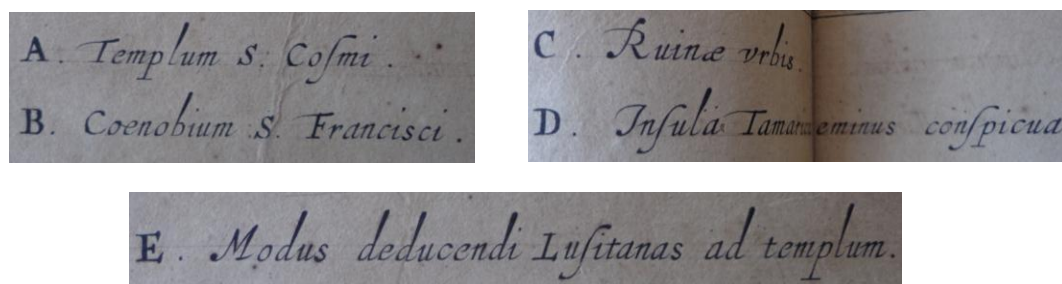 A. Templum S. Coſmi.
B. Coenobium S. Franciſci.
C. Ruinæ vrbis.
D. Inſula eminus conſpicua
E. Modus deducendi Luſitanas ad templum.